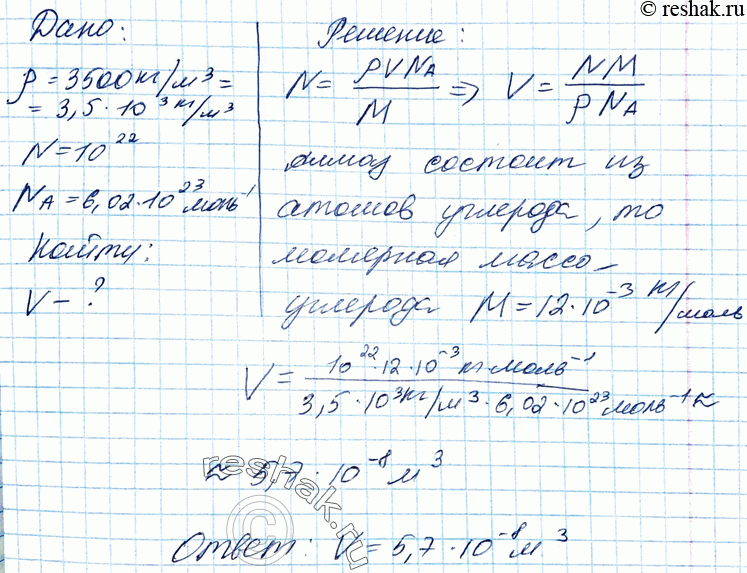 © reshak.ru
Дано:
ρ = 3500 кг/м³ =
= 3,5 · 10³ кг/м³
N = 10²²
N_A = 6,02 · 10²³ моль⁻¹
Найти:
V - ?
Решение:
N = ρVN_A / M => V = NM / ρN_A
Алмаз состоит из
атомов углерода, то
молярная масса
углерода M = 12 · 10⁻³ кг/моль
V = 10²² · 12 · 10⁻³ кг · моль⁻¹ / 3,5 · 10³ кг/м³ · 6,02 · 10²³ моль⁻¹ ≈
≈ 5,7 · 10⁻⁸ м³
reshak.ru
©
Ответ: V = 5,7 · 10⁻⁸ м³